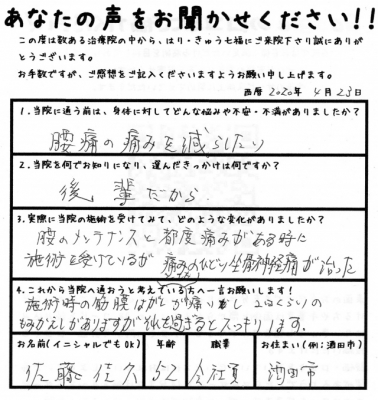 あなたの声をお聞かせください!!
この度は数ある治療院の中から、はり・きゅう七福にご来院下さり誠にありが
とうございます。
お手数ですが、ご感想をご記入くださいますようお願い申し上げます。
西暦 2020年 4月 23日
1.当院に通う前は、身体に対してどんな悩みや不安・不満がありましたか?
腰痛の痛みを減らしたい
2.当院を何でお知りになり、選んだきっかけは何ですか?
後輩だから
3.実際に当院の施術を受けてみて、どのような変化がありましたか?
腰のメンテナンスと都度痛みがある時に
施術を受けているが 痛みのひどい坐骨神経痛が治った
4.これから当院へ通おうと考えている方へ一言お願いします!
施術時の筋膜はがしが痛いが 2日くらいの
もみかえしがありますがそれを過ぎるとスッキリします。
お名前(イニシャルでもOK) 年齢 職業 お住まい(例:酒田市)
佐藤 佳久 52 会社員 酒田市